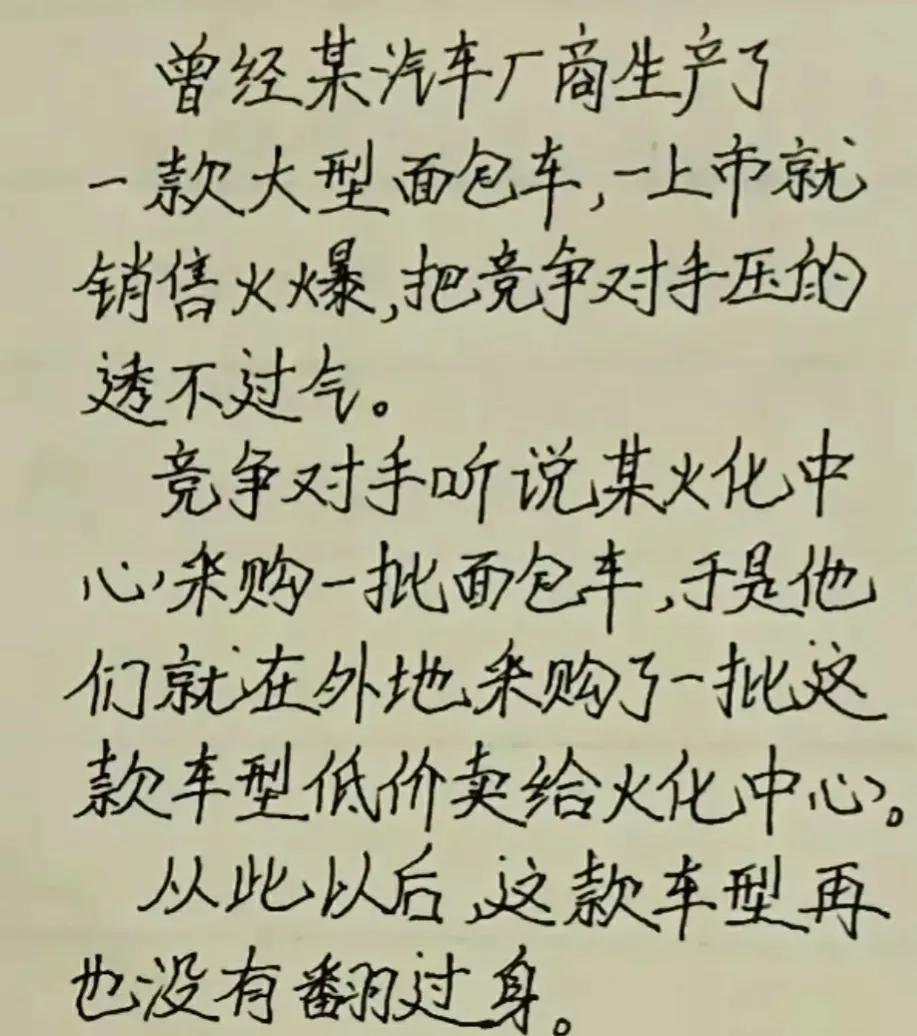 曾经某汽车厂商生产了
一款大型面包车,一上市就
销售火爆,把竞争对手压的
透不过气。
竞争对手听说某火化中
心采购一批面包车,于是他
们就在外地采购了一批这
款车型低价卖给火化中心。
从此以后,这款车型再
也没有翻过身。